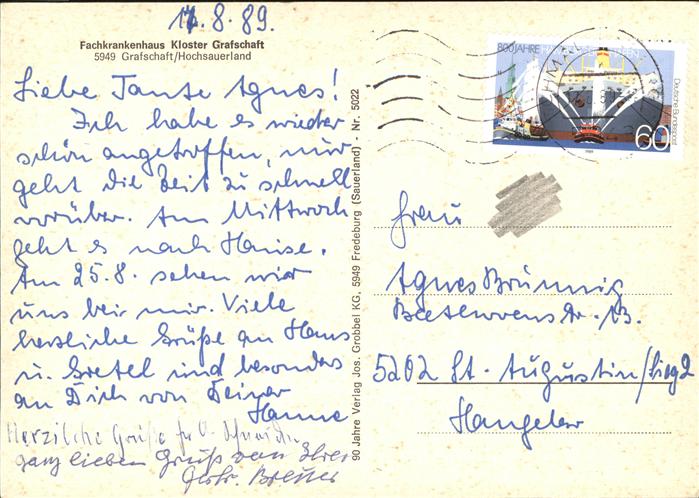 1.8.89.
Fachkrankenhaus Kloster Grafschaft
5949 Grafschaft/Hochsauerland
Liebe Tante Agnes!
Ich habe es wieder
schön angetroffen, nur
geht die Zeit zu schnell
vorüber. Am Mittwoch
geht es nach Hause.
Am 25.8. sehen wir
uns bei mir. Viele
herzliche Grüße an Hans
u. Gretel und besonders
an Dich von Deiner
Hanne
Herzliche Grüße
ganz lieben Gruß von Ihrer
90 Jahre Verlag Jos. Grobbel KG, 5949 Fredeburg (Sauerland) · Nr. 5022
800 JAHRE
Deutsche Bundespost
60
Frau
Agnes Brünnig
Beethovenstr.
5202 St. Augustin/Sieg 2
Hangelar